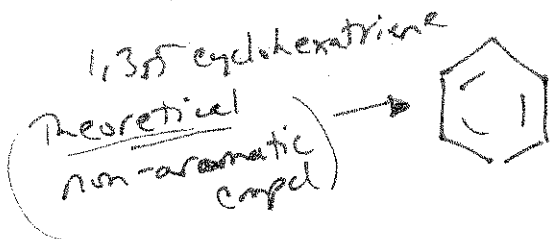 1,3,5 cyclohexatriene
(Theoretical
non-aromatic
cmpd)